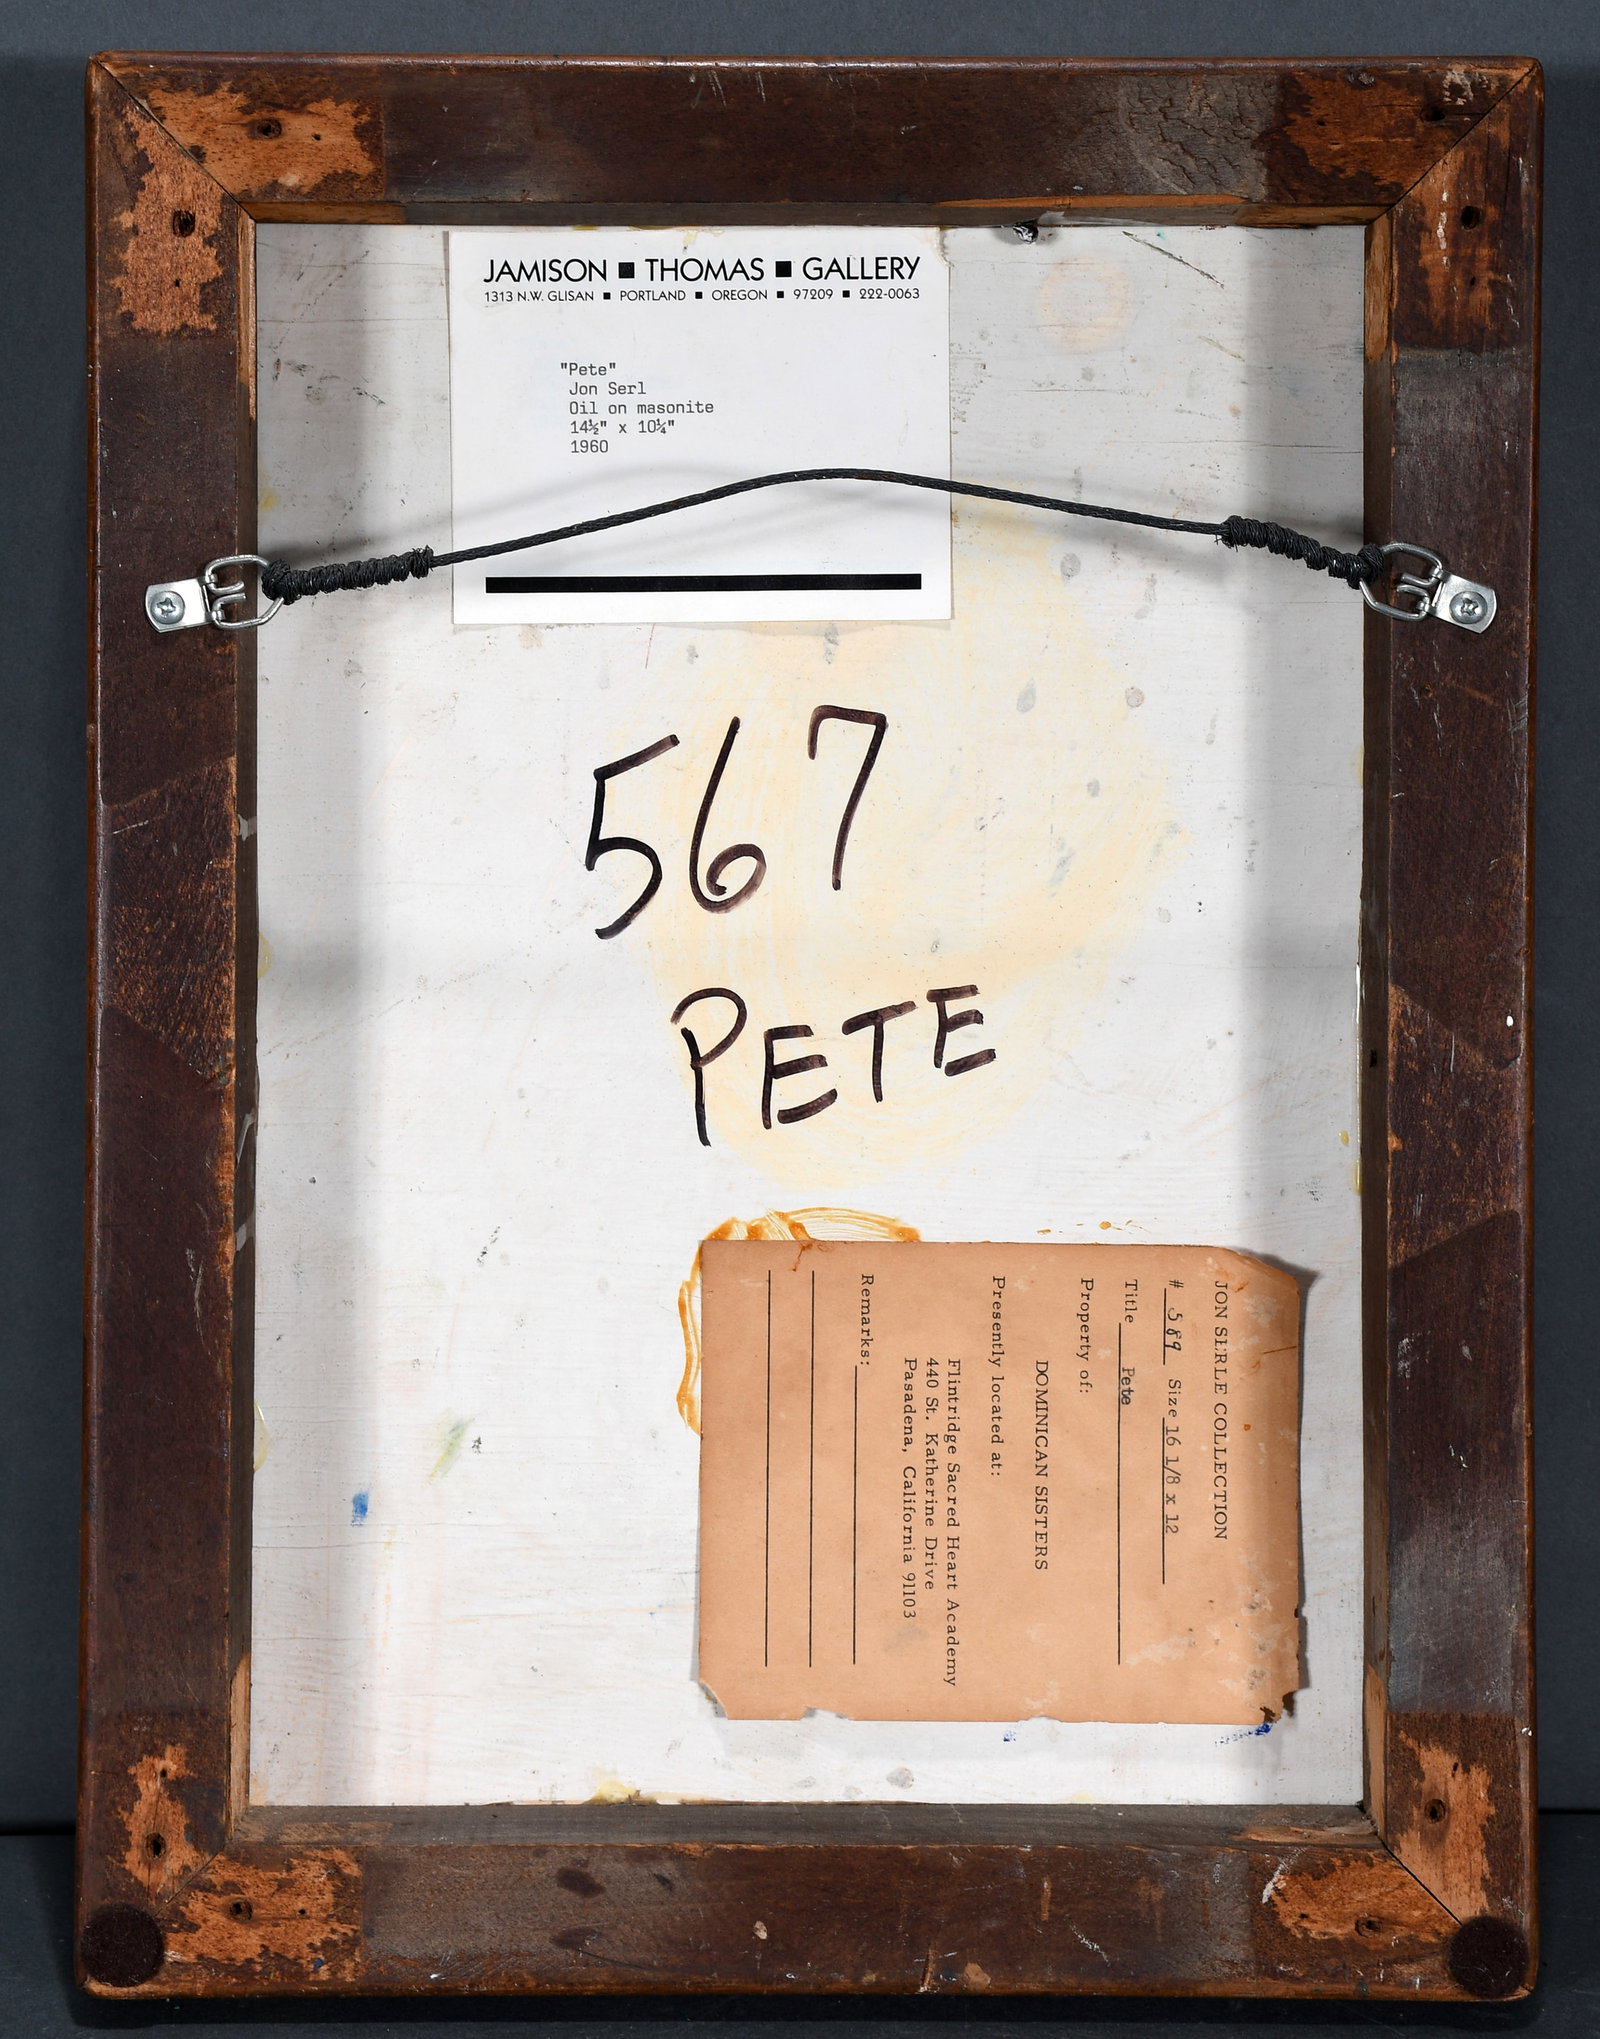 JAMISON ■ THOMAS ■ GALLERY
1313 N.W. GLISAN ■ PORTLAND ■ OREGON ■ 97209 ■ 222-0063
"Pete"
Jon Serl
Oil on masonite
14½" x 10¼"
1960
567
PETE
JON SERLE COLLECTION
# 589 Size 16 1/8 x 12
Title Pete
Property of:
DOMINICAN SISTERS
Presently located at:
Flintridge Sacred Heart Academy
440 St. Katherine Drive
Pasadena, California 91103
Remarks: